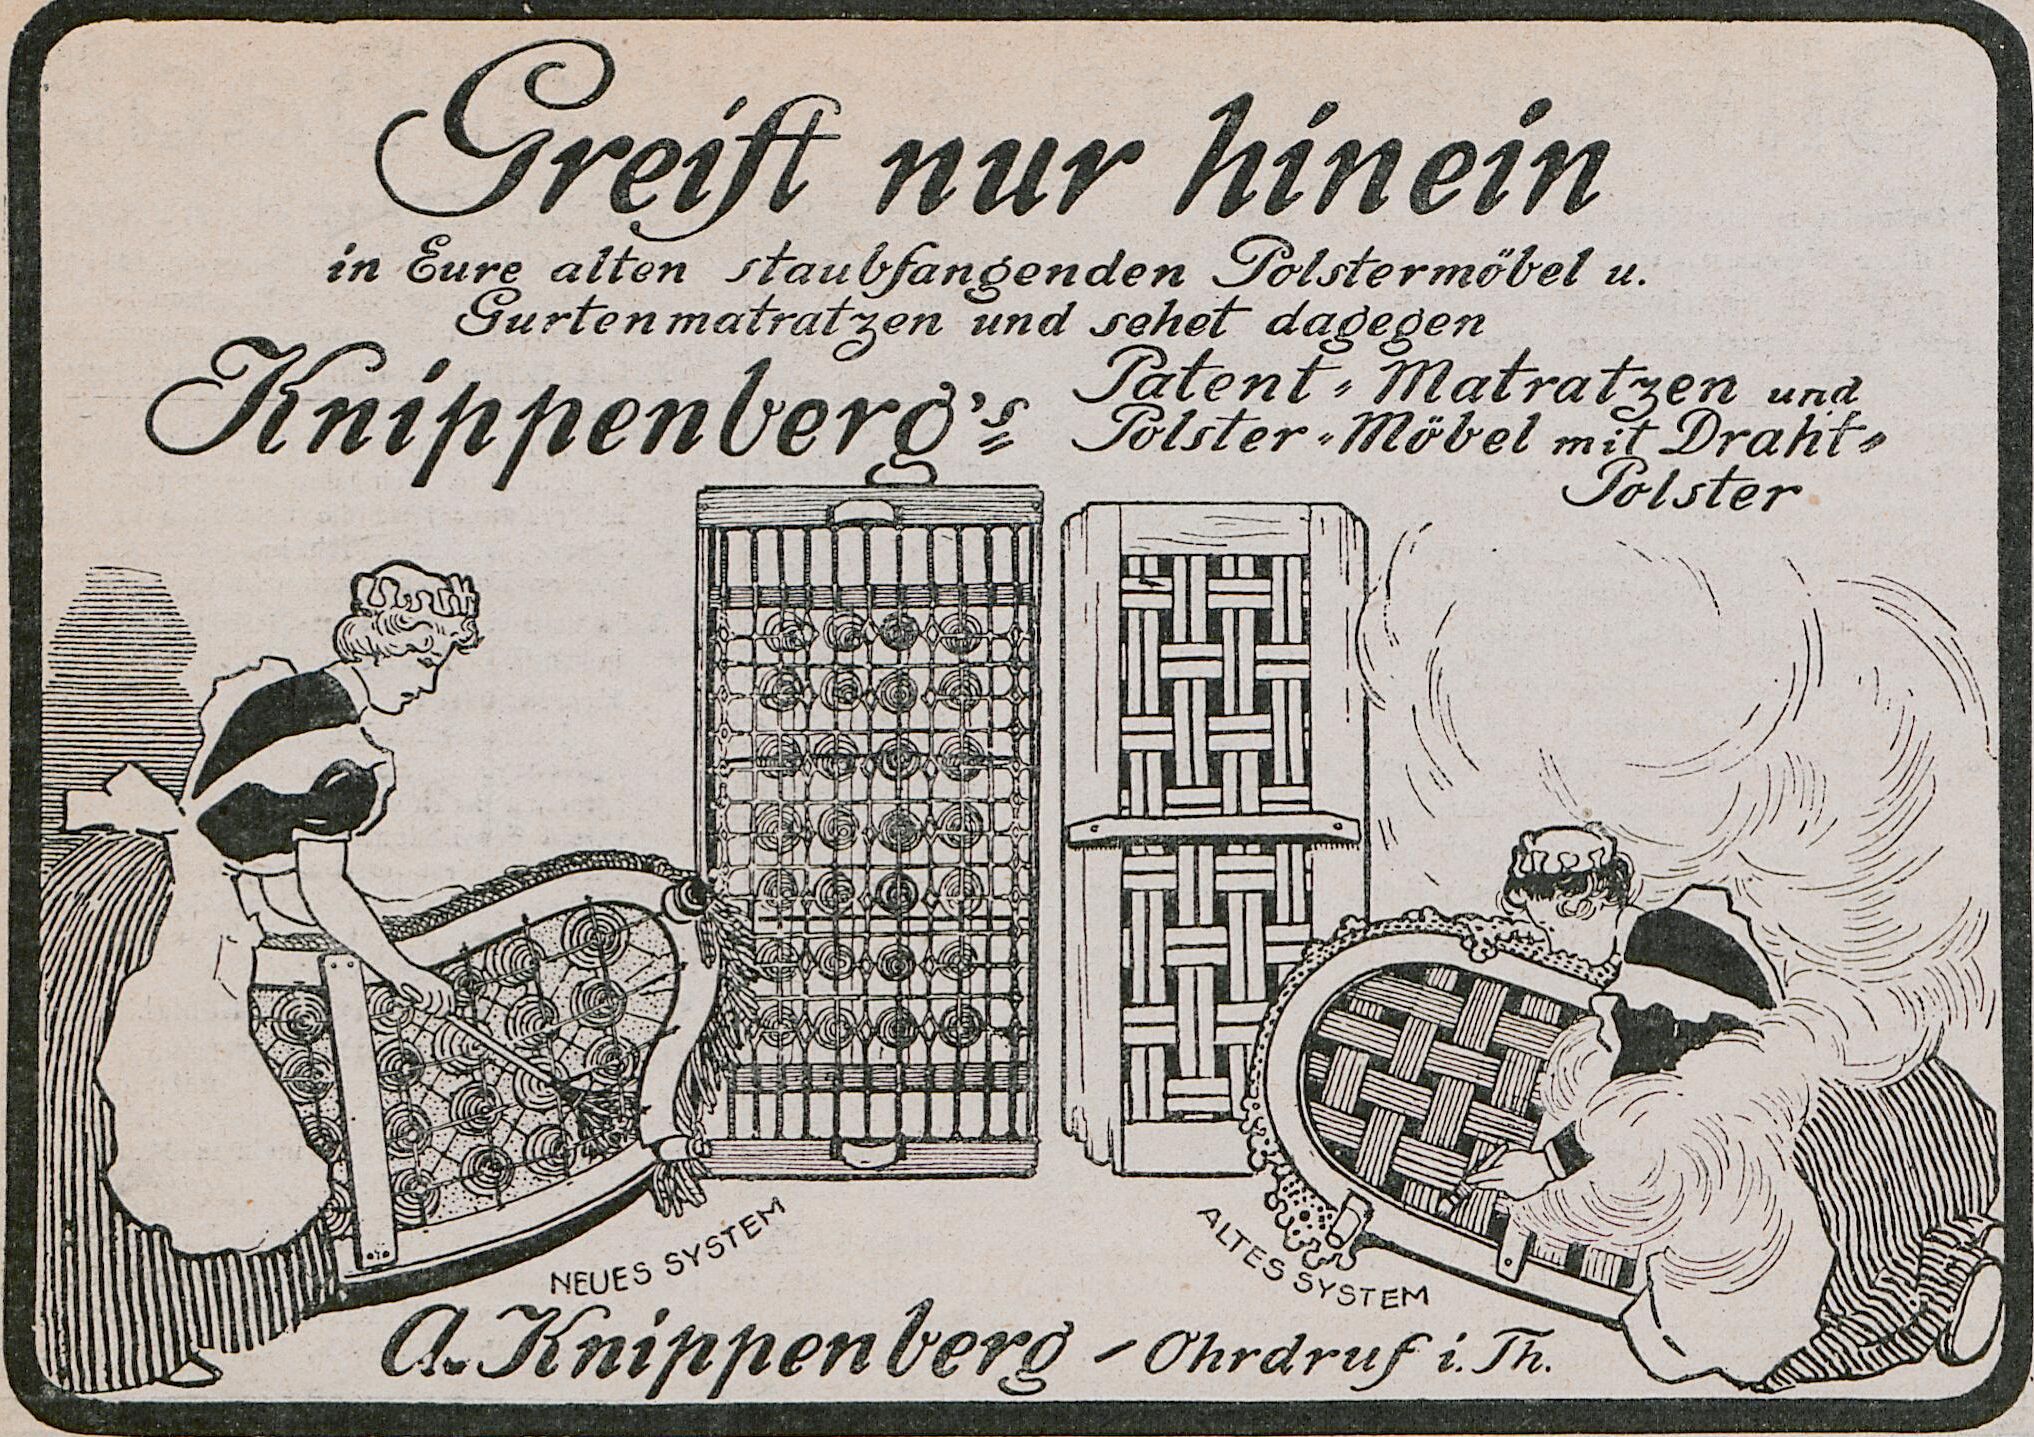 Greift nur hinein
in Eure alten staubfangenden Polstermöbel u.
Gurtenmatratzen und sehet dagegen
Knippenberg's Patent-Matratzen und
Polster-Möbel mit Draht-
Polster
NEUES SYSTEM
ALTES SYSTEM
A. Knippenberg - Ohrdruf i. Th.